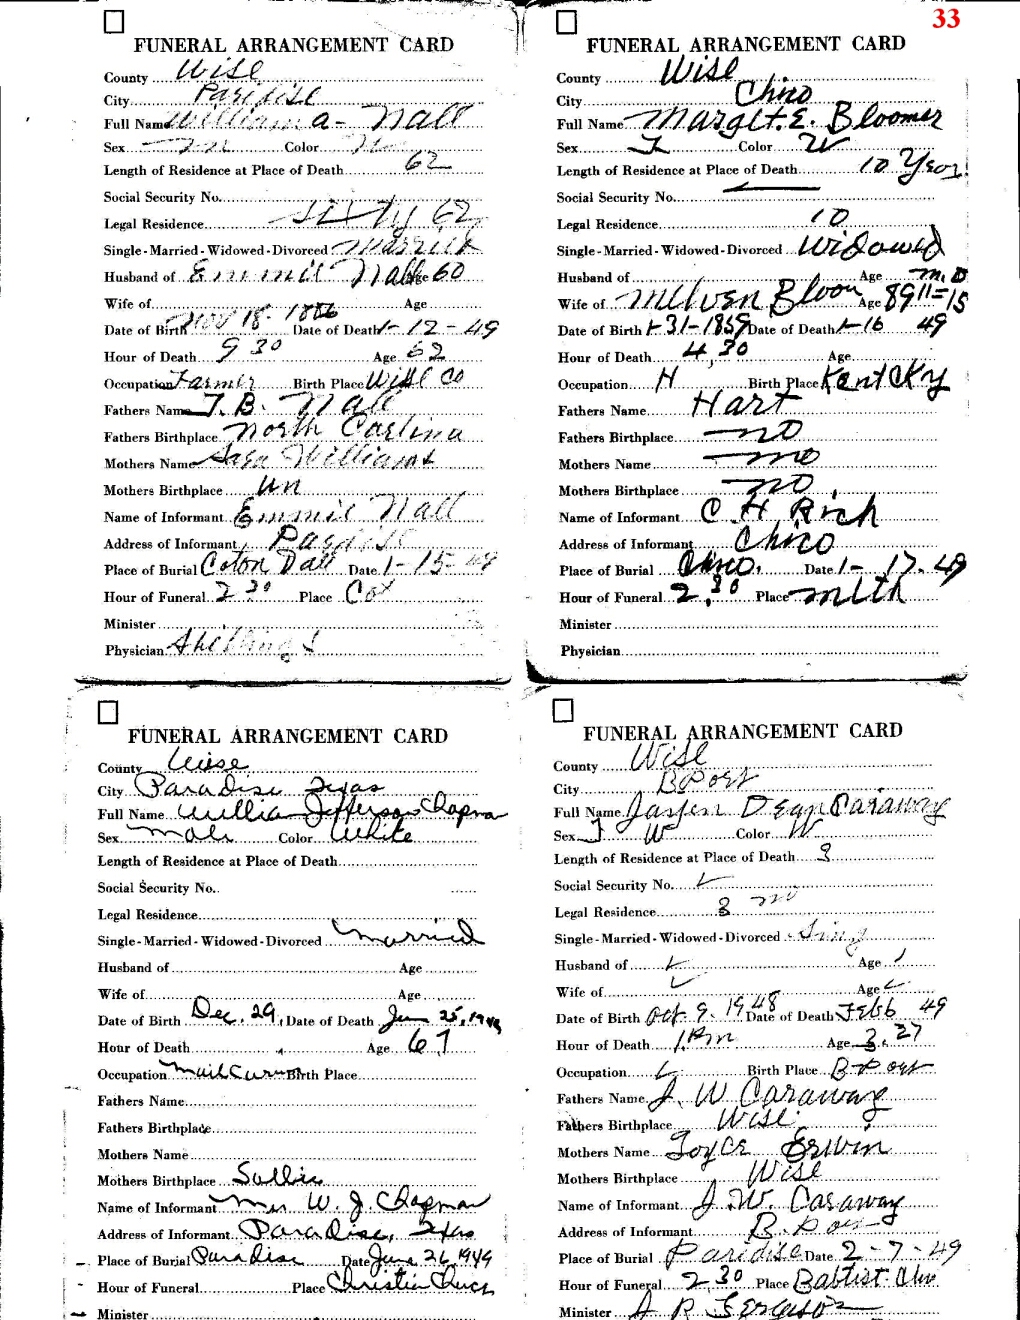 33
FUNERAL ARRANGEMENT CARD
County Wise
City Paridise
Full Name William a- Nall
Sex m Color
Length of Residence at Place of Death 62
Social Security No.
Legal Residence 62
Single-Married-Widowed-Divorced Married
Husband of Emmie Nall Age 60
Wife of Age
Date of Birth Nov 18- 1886 Date of Death 1-12-49
Hour of Death 9 30 Age 62
Occupation Farmer Birth Place Wise Co
Fathers Name T.B. Nall
Fathers Birthplace North Carlina
Mothers Name Sara Williams
Mothers Birthplace un
Name of Informant Emmie Nall
Address of Informant Paridise
Place of Burial Coton Dall Date 1-15-49
Hour of Funeral 2 30 Place Cox
Minister
Physician
FUNERAL ARRANGEMENT CARD
County Wise
City Chico
Full Name Margret. E. Bloomer
Sex F Color W
Length of Residence at Place of Death 10 Year
Social Security No.
Legal Residence 10
Single-Married-Widowed-Divorced Widowed
Husband of Age m. D
Wife of Melven Bloom Age 89 11=15
Date of Birth 1-31-1859 Date of Death 1-16 49
Hour of Death 4,30 Age
Occupation H Birth Place KentCky
Fathers Name Hart
Fathers Birthplace no
Mothers Name no
Mothers Birthplace no.
Name of Informant C H Rich
Address of Informant Chico
Place of Burial Chico. Date 1- 17. 49
Hour of Funeral 2,30 Place mtth
Minister
Physician
FUNERAL ARRANGEMENT CARD
County Wise
City Paradise Texas
Full Name William Jefferson Chapman
Sex Male Color White
Length of Residence at Place of Death
Social Security No.
Legal Residence
Single-Married-Widowed-Divorced Married
Husband of Age
Wife of Age
Date of Birth Dec. 29, Date of Death June 25, 1949
Hour of Death Age 67
Occupation Mail Carrier Birth Place
Fathers Name
Fathers Birthplace
Mothers Name
Mothers Birthplace Sallie
Name of Informant Mrs W. J. Chapman
Address of Informant Paradise, Texas
Place of Burial Paradise Date June 26 1949
Hour of Funeral Place Christin Church
Minister
FUNERAL ARRANGEMENT CARD
County Wise
City B Port
Full Name Dean Caraway
Sex F W Color W
Length of Residence at Place of Death 3
Social Security No.
Legal Residence 3 mo
Single-Married-Widowed-Divorced Sing
Husband of Age
Wife of Age
Date of Birth Oct. 9. 1948 Date of Death Feb 6 49
Hour of Death 1.Pm Age 3. 27
Occupation Birth Place B Port
Fathers Name J. W Caraway
Fathers Birthplace Wise
Mothers Name Joyce Erwin
Mothers Birthplace Wise
Name of Informant J. W. Caraway
Address of Informant B. Port
Place of Burial Paridise Date 2-7-49
Hour of Funeral 2 30 Place Babtist Chu
Minister J R Ferguson